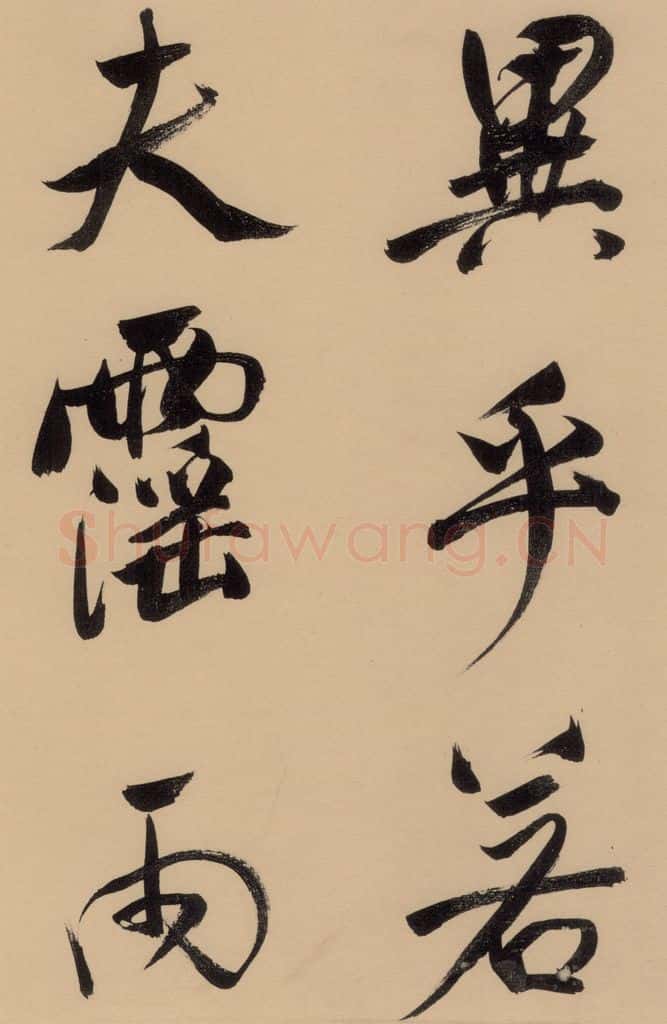 異乎若
夫霪雨
Shufawang.CN